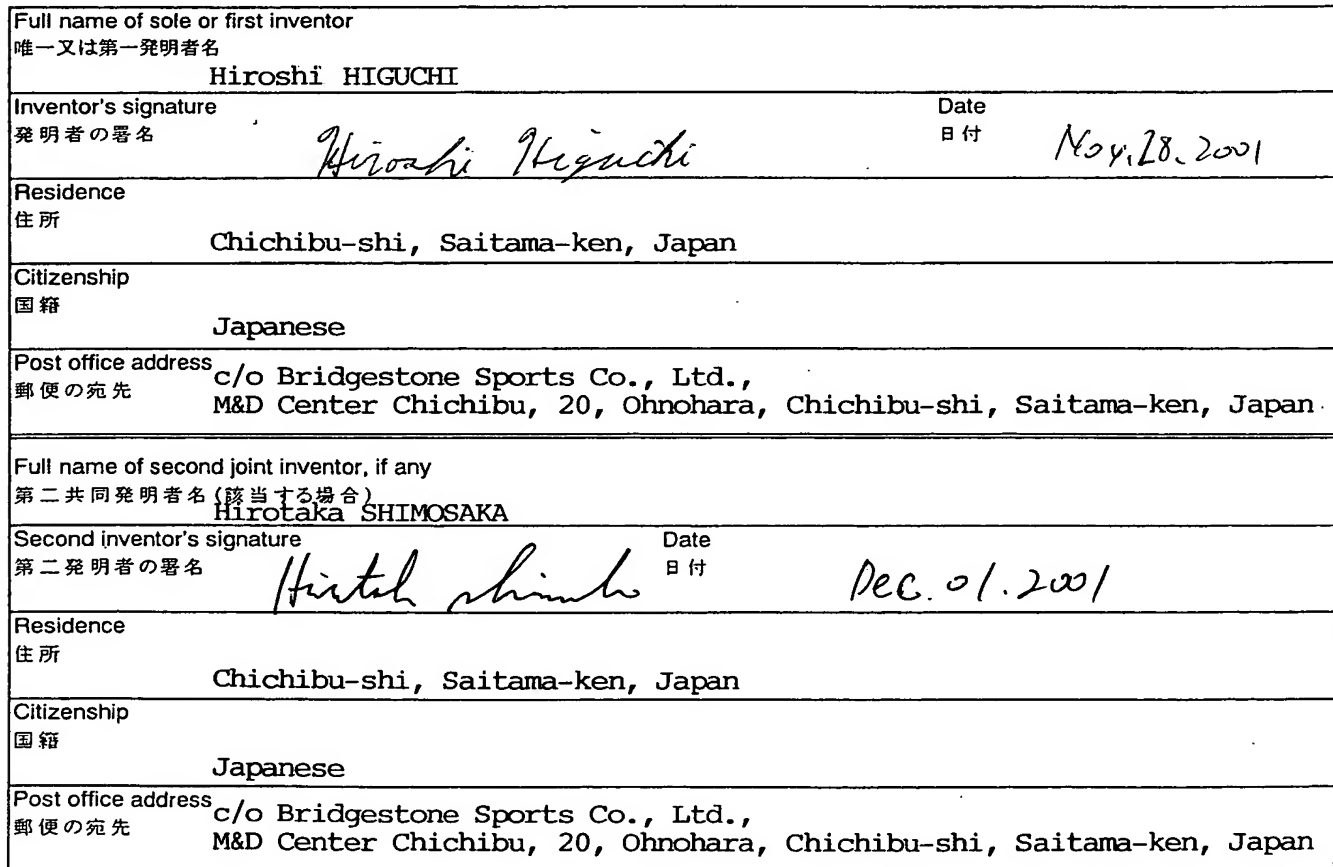 Full name of sole or first inventor
唯一又は第一発明者名
Hiroshi HIGUCHI
Inventor's signature Date
発明者の署名 Hiroshi Higuchi 日付 Nov. 28. 2001
Residence
住所
Chichibu-shi, Saitama-ken, Japan
Citizenship
国籍
Japanese
Post office address c/o Bridgestone Sports Co., Ltd.,
郵便の宛先 M&D Center Chichibu, 20, Ohnohara, Chichibu-shi, Saitama-ken, Japan
Full name of second joint inventor, if any
第二共同発明者名 (該当する場合)
Hirotaka SHIMOSAKA
Second inventor's signature Date
第二発明者の署名 日付 Dec. 01. 2001
Residence
住所
Chichibu-shi, Saitama-ken, Japan
Citizenship
国籍
Japanese
Post office address c/o Bridgestone Sports Co., Ltd.,
郵便の宛先 M&D Center Chichibu, 20, Ohnohara, Chichibu-shi, Saitama-ken, Japan